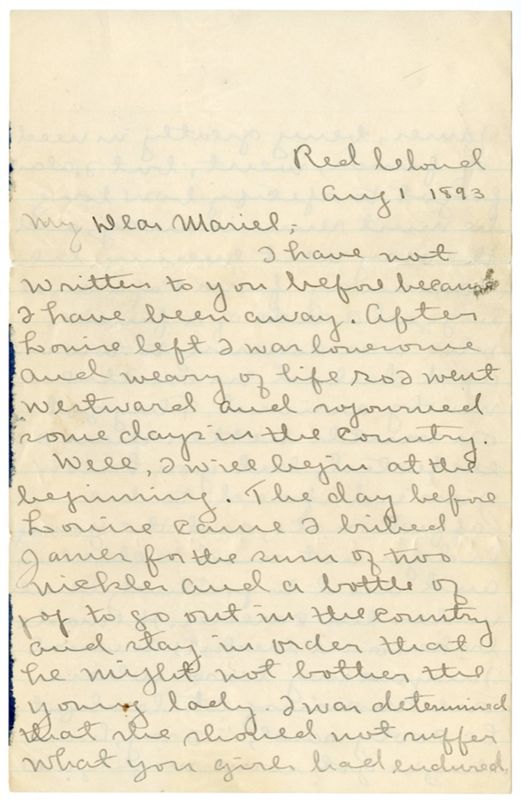 Red Cloud
Aug 1 1893
My Dear Mariel,-
I have not
written to you before because
I have been away. After
Louise left I was lonesome
and weary of life so I went
westward and sojourned
some days in the country.
Well, I will begin at the
beginning. The day before
Louise came I bribed
James for the sum of two
nickles and a bottle of
pop to go out in the country
and stay in order that
he might not bother the
young lady I was determined
that she should not suffer
what you girls had endured,